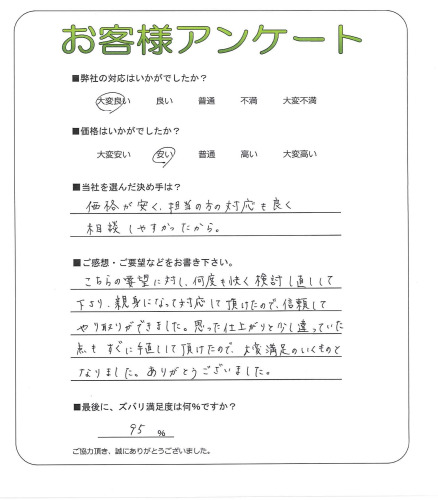 お客様アンケート
■弊社の対応はいかがでしたか?
大変良い 良い 普通 不満 大変不満
■価格はいかがでしたか?
大変安い 安い 普通 高い 大変高い
■当社を選んだ決め手は?
価格が安く、担当の方の対応も良く
相談しやすかったから。
■ご感想・ご要望などをお書き下さい。
こちらの要望に対し、何度も快く検討し直しして
下さり、親身になって対応して頂けたので、信頼して
やり取りができました。思った仕上がりと少し違っていた
点もすぐに手直しして頂けたので、大変満足のいくものと
なりました。ありがとうございました。
■最後に、ズバリ満足度は何%ですか?
95 %
ご協力頂き、誠にありがとうございました。